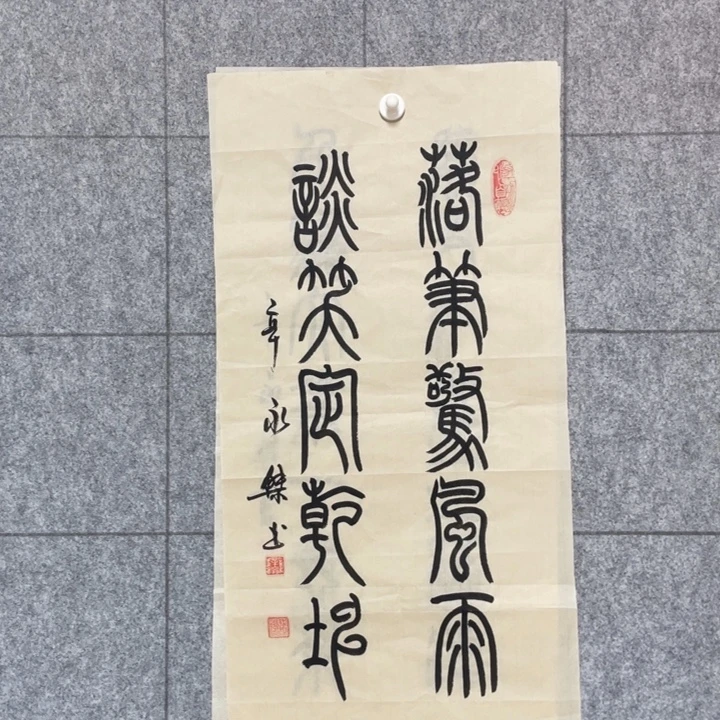 落筆驚風雨
談笑定乾坤
辛永傑书